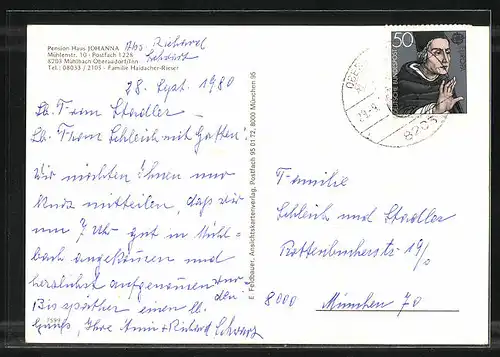 Pension Haus JOHANNA
Mühlenstr. 10 · Postfach 1226
8203 Mühlbach Oberaudorf/Inn
Tel.: 08033 / 2105 - Familie Haidacher-Rieser
Abs. Richard
Schwarz
28. Sept. 1980
Lb. Frau Stadler
Lb. Thom Schleich mit Gatten!
Wir möchten Ihnen nur
kurz mitteilen, daß wir
um 7 Uhr gut in Mühl-
bach angekommen und
herzlichst aufgenommen wur-
den.
Bis später einen lb.
Gruß, Ihre Anni + Richard Schwarz
E. Feldbauer, Ansichtskartenverlag, Postfach 95 01 72, 8000 München 95
50
DEUTSCHE BUNDESPOST
8203
Familie
Schleich und Stadler
Rottenbucherstr 19/0
8000 München 70